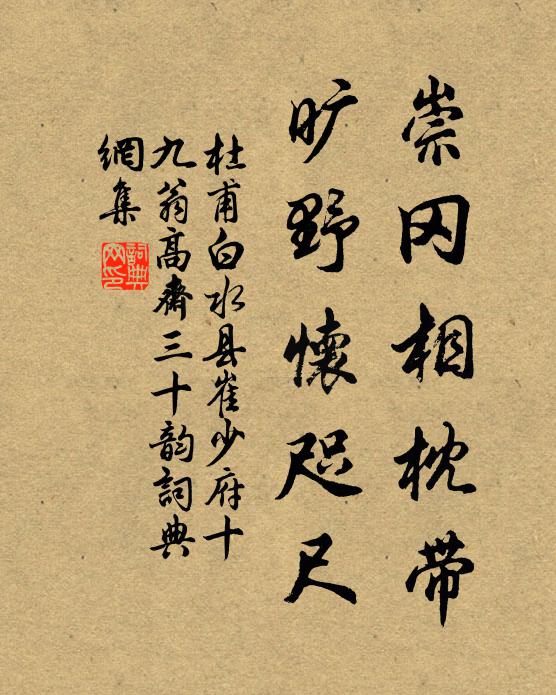 崇冈相枕带
旷野懷咫尺
杜甫白水县崔少府十
九翁高齋三十韵詞典
網集
詞典
网印